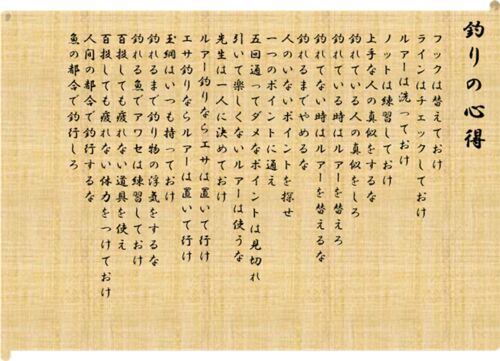 釣りの心得
フックは替えておけ
ラインはチェックしておけ
ルアーは洗っておけ
ノットは練習しておけ
上手な人の真似をするな
釣れている人の真似をしろ
釣れている時はルアーを替えろ
釣れてない時はルアーを替えるな
釣れるまでやめるな
人のいないポイントを探せ
一つのポイントに通え
五回通ってダメなポイントは見切れ
引いて楽しくないルアーは使うな
先生は一人に決めておけ
ルアー釣りならエサは置いて行け
エサ釣りならルアーは置いて行け
玉網はいつも持っておけ
釣れるまで釣り物の浮気をするな
釣れる魚でアワセは練習しておけ
百投しても疲れない道具を使え
百投しても疲れない体力をつけておけ
人間の都合で釣行するな
魚の都合で釣行しろ